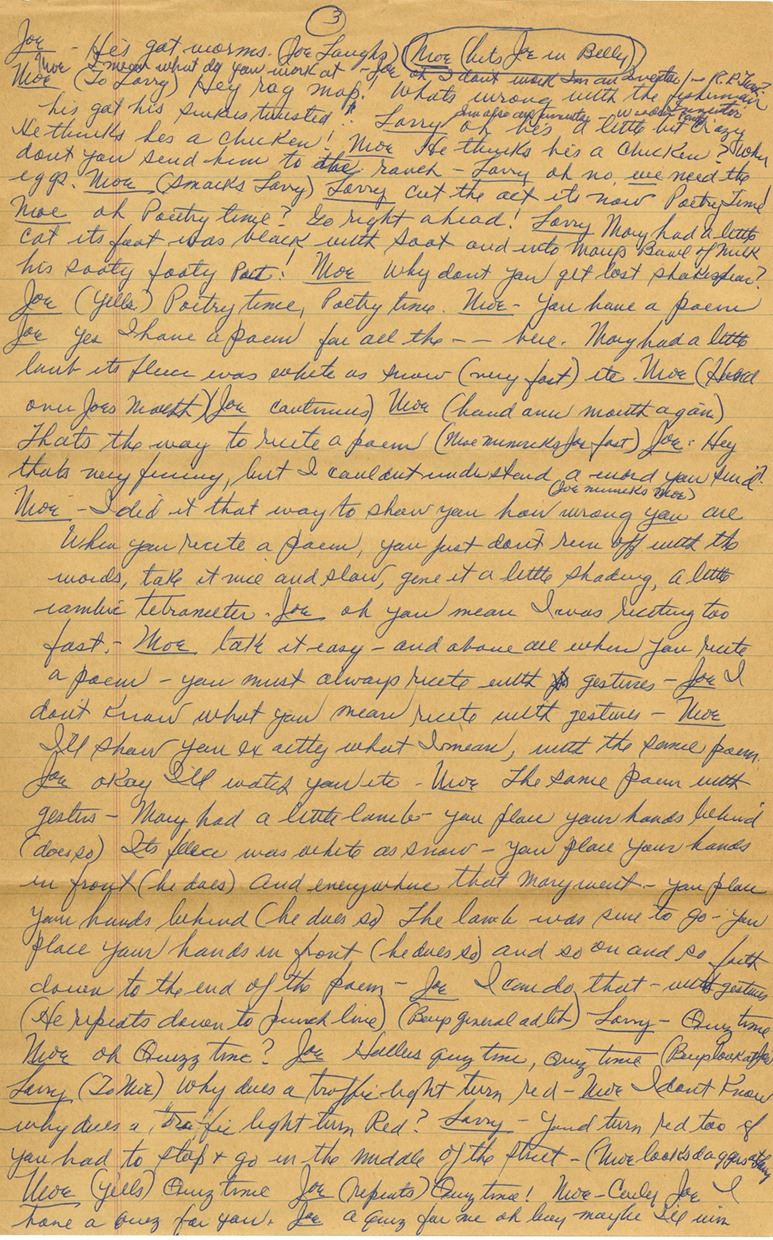 3
Joe - He's got worms. (Joe Laughs) Moe (hits Joe in Belly)
Moe I mean what do you work at - Joe oh I dont work Im an Inventor! -
Moe (To Larry) Hey rag mop! Whats wrong with the fisherman
his got his sinkes twisted! Larry oh he's a little bit crazy
He thinks hes a chicken! Moe He thinks his a chicken? Why
dont you send him to the ranch - Larry oh no, we need the
eggs. Moe (smacks Larry) Larry cut the act its now Poetry Time!
Moe oh Poetry time? Go right ahead! Larry Mary had a little
cat its foot was black with soot and into Marys Bowl of Milk
his sooty footy Poot! Moe Why dont you get lost shakespear?
Joe (yells) Poetry time, Poetry time. Moe - You have a poem
Joe yes I have a poem for all the - - here. Mary had a little
lamb its fleece was white as snow (very fast) etc. Moe (Hand
over Joes Mouth) (Joe continues) Moe (hand over mouth again)
Thats the way to recite a poem (Moe mimicks Joe fast) Joe: Hey
thats very funny, but I couldnt understand a word you said?
(Joe mimicks Moe)
Moe - I did it that way to show you how wrong you are
When you recite a poem, you just don't run off with the
words, take it nice and slow, give it a little shading, a little
iambic tetrameter. Joe oh you mean I was reciting too
fast. - Moe take it easy - and above all when you recite
a poem - you must always recite with gestures - Joe I
dont know what you mean recite with gestures - Moe
I'll show you exactly what I mean, with the same poem.
Joe okay I'll watch you etc - Moe The same poem with
gesturs - Mary had a little lamb - you place your hands behind
(does so) Its fleece was white as snow - you place your hands
in front (he does) And everywhere that Mary went - you place
your hands behind (he does so) The lamb was sure to go - you
place your hands in front (he does so) and so on and so forth
down to the end of the poem - Joe I can do that - with gestures
(He repeats down to punch line) (Boys general ad lib) Larry - Quiz time
Moe oh Quizz time? Joe Hollers quiz time, Quiz time (Boys look at Joe
Larry (To Moe) Why does a traffic light turn red - Moe I dont Know
why does a traffic light turn Red? Larry - Youd turn red too if
you had to stop & go in the middle of the street - (Moe looks daggers at Larry
Moe (yells) Quiz time Joe (repeats) Quiz time! Moe - Curly Joe I
have a quiz for you. Joe a Quiz for me oh boy maybe I'll win